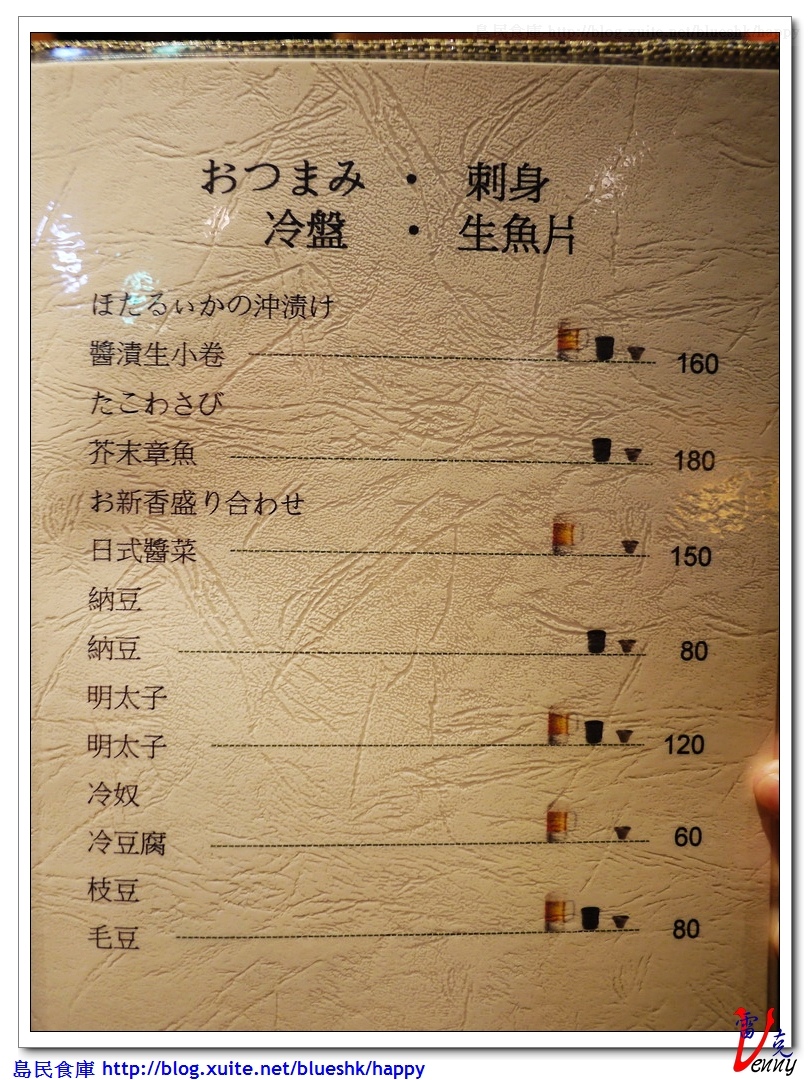 島民食庫 http://blog.xuite.net/blueshk/happy
おつまみ ・ 刺身
冷盤 ・ 生魚片
ほたるぃかの沖漬け
醬漬生小卷 160
たこわさび
芥末章魚 180
お新香盛り合わせ
日式醬菜 150
納豆
納豆 80
明太子
明太子 120
冷奴
冷豆腐 60
枝豆
毛豆 80
雷克
Venny
島民食庫 http://blog.xuite.net/blueshk/happy